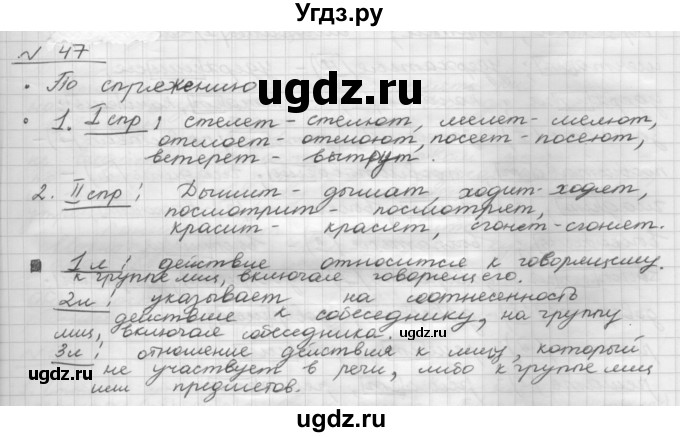 Угдз.ру
№ 47
• По спряжению
• 1. I спр: стелет - стелют, мелет - мелют,
отмоет - отмоют, посеет - посеют,
ветерет - вытрут.
2. II спр: Дышит - дышат, ходит - ходят,
посмотрит - посмотрят,
красит - красят, сгонет - сгоняет.
1л: действие относится к говорящему.
к группе лиц, включая говорящего.
2л: указывает на соотнесенность
действие к собеседнику, на группу
лиц, включая собеседника.
3л: отношение действия к лицу, который
не участвует в речи, либо к группе лиц
или предметов.
ugdz.ru
ugdz.ru
ugdz.ru
ugdz.ru
ugdz.ru
ugdz.ru
ugdz.ru
ugdz.ru